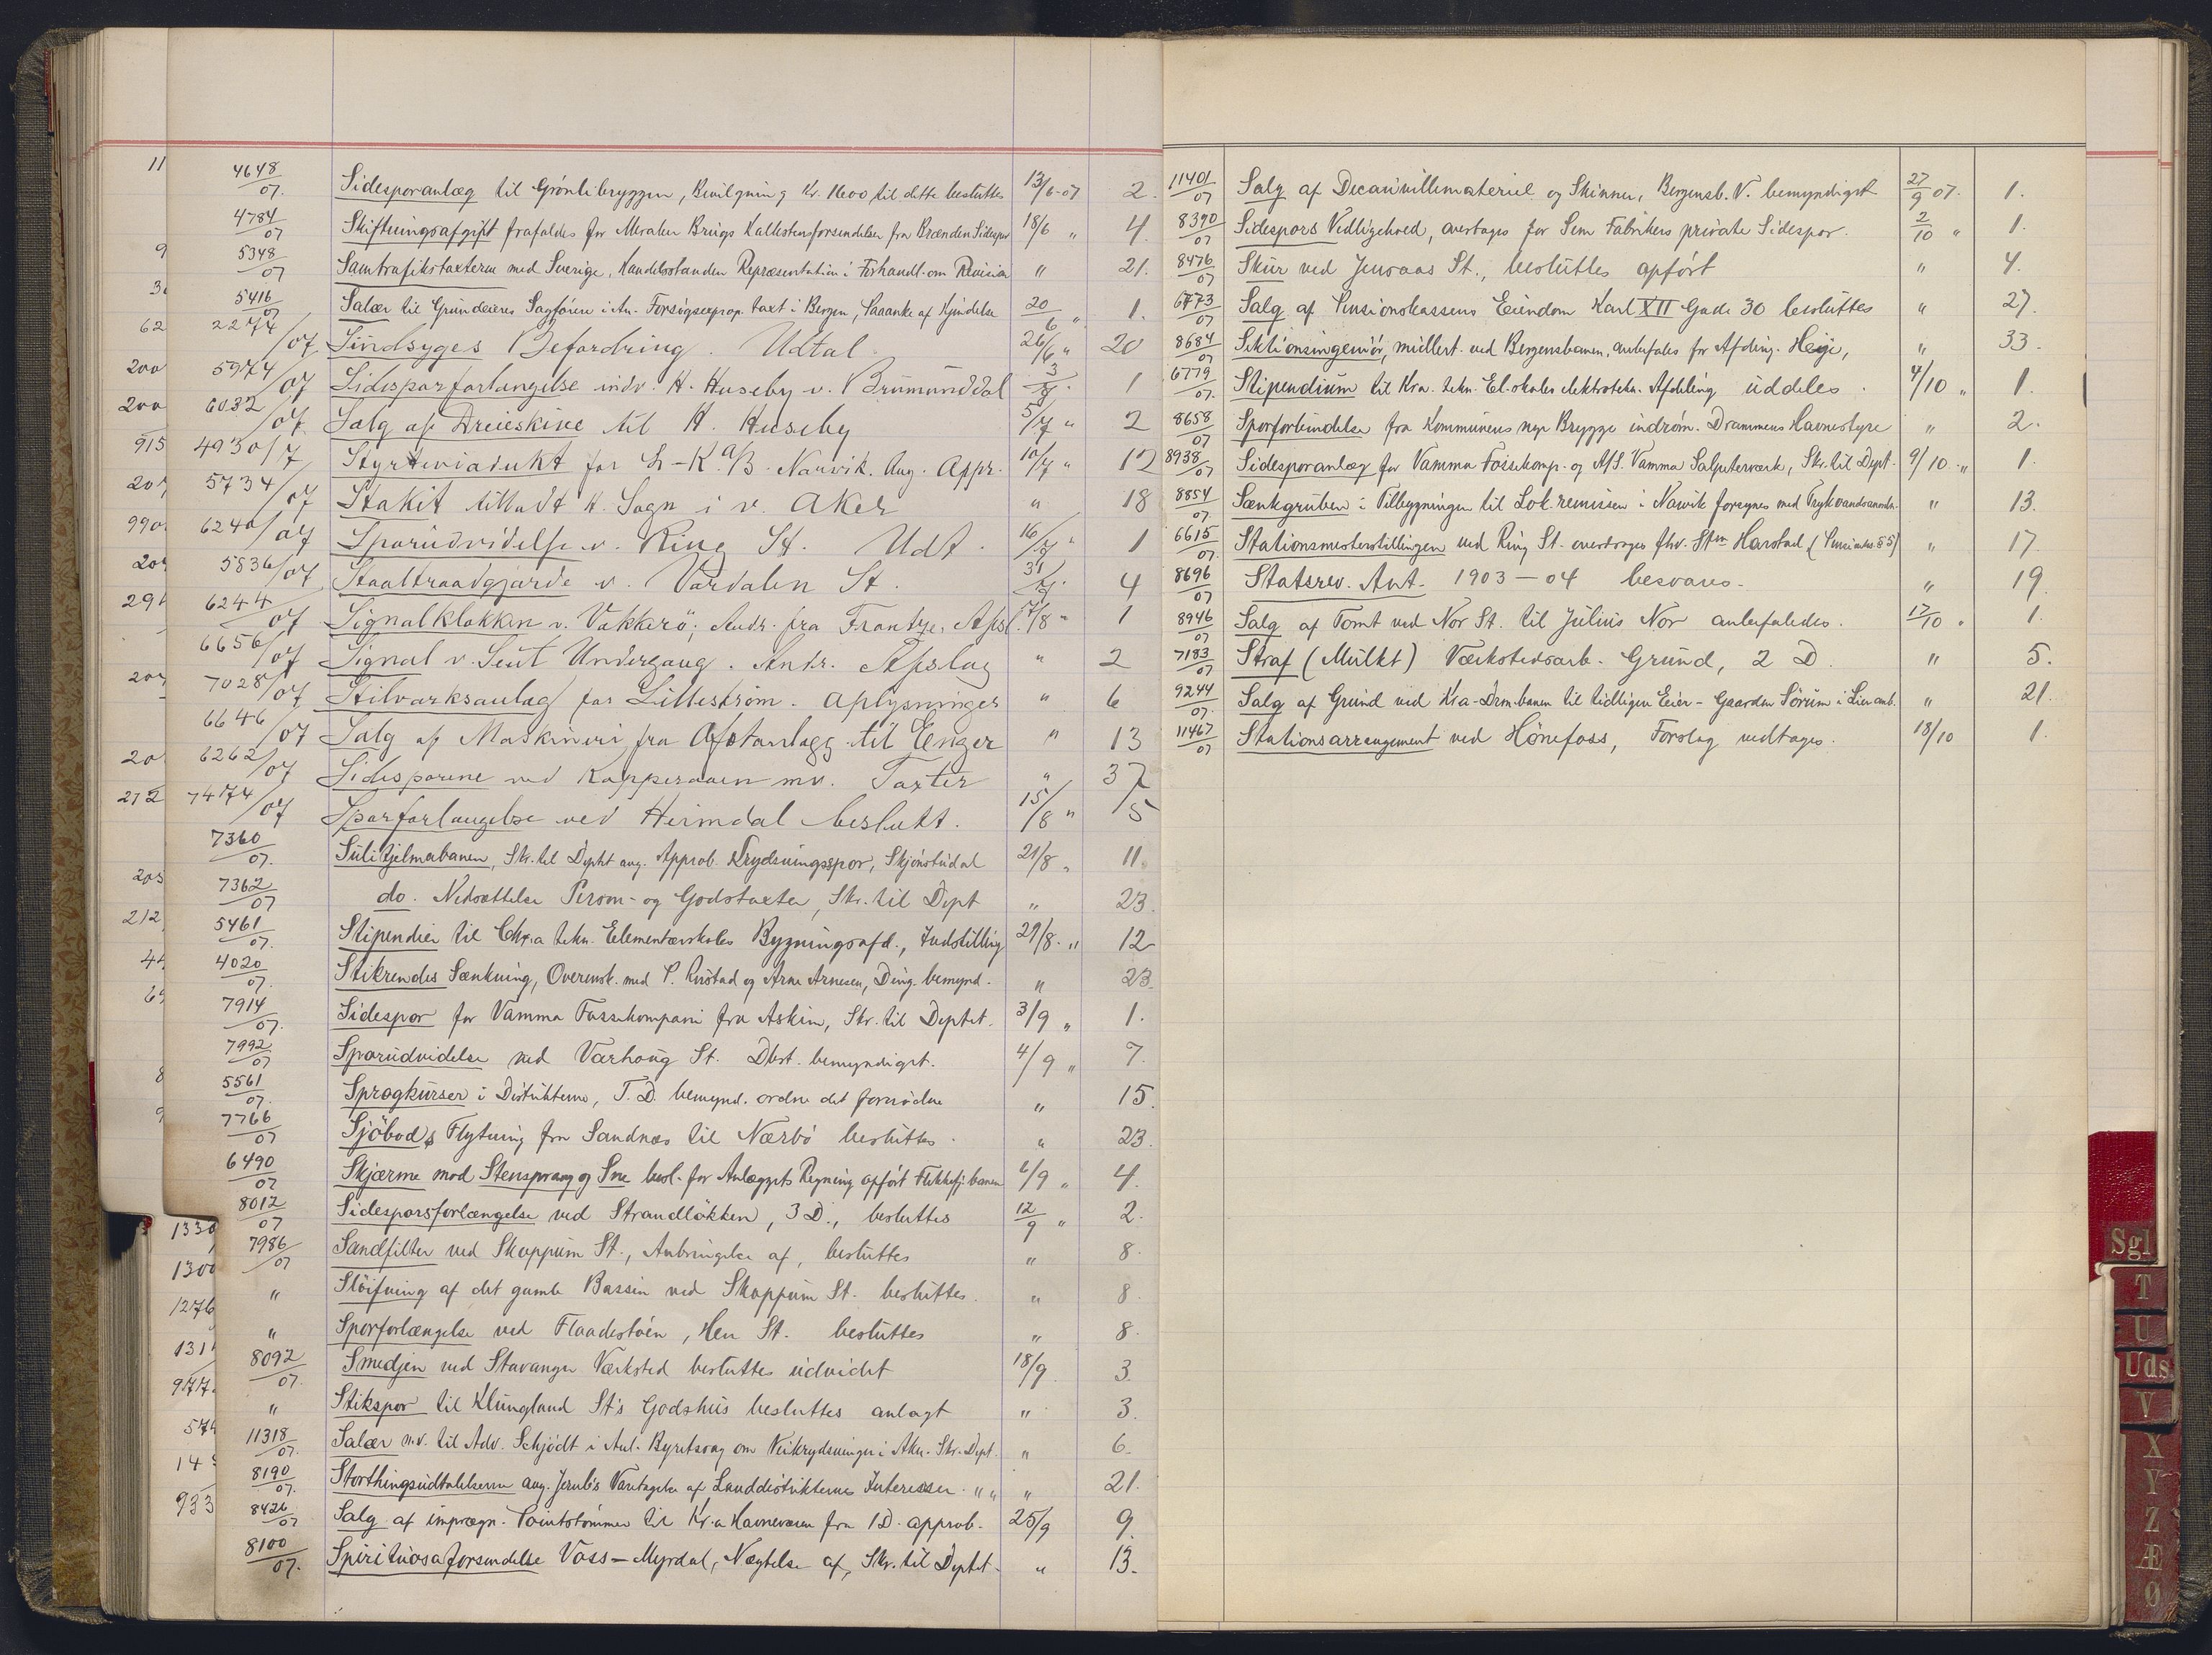 4648/07. Sidesporanlæg til Grønlibryggen, Bevilgning Kr. 1600 til dette besluttes 13/6-07 2.
4784/07 Skiftningsafgift frafaldes for Meraker Brugs Kalkstensforsendelser fra Brænden Sidespor 18/6 " 4.
5348/07 Samtrafiktaxterne med Sverige, Handelsstanden Repræsentation i Forhandl. om Revision " 21.
5416/07 Salær til Grundeieres Sagførere i Forsøgsexprop. taxt i Bergen, Paaanke af Kjendelse 20/6 " 1.
2274/07 Sindsyges Befordring. Udtal. 26/6 " 20
5974/07 Sidesporforlængelse indv. H. Huseby v. Brumunddal 3/7. 1
6032/07 Salg af Dreieskive til H. Huseby 5/7 " 2
4930/7 Styrteviadukt for L-K. A/B. Narvik. Ang. Appr. 10/7 " 12
5734/07 Stakit tilladt H. Sogn i v. Aker " 18
6240/07 Sporudvidelse v. Ring St. Udt. 16/7 " 1
5836/07 Staaltraadgjærde v. Værdalen St. 31/7. 4
6244/07 Signalklokken v. Vækkerö; Andr. fra Frantze, Afsl. 7/8 " 1
6656/07 Signal v. Sent Undergang. Andr. Afslag " 2
7028/07 Stilværksanlæg for Lilleström. Oplysninger " 6
6646/07 Salg af Maskineri fra Afotanlægg til Enger " 13
6262/07 Sidesporene ved Kopperaaen mv. Taxter " 37
7474/07 Sporforlængelse ved Heimdal beslutt. 15/8 " 5
7360/07. Sulitjelmabanen, Skr. til Dept ang. Approb. Krydsningsspor, Skjönstudal 21/8 " 11.
7362/07 do. Nedsættelse Person- og Godstaxter, Skr. til Dept " 23.
5461/07. Stipendier til Chr.a tekn. Elementærskoles Bygningsafd., Indstilling 29/8. " 12
4020/07. Stikrendes Sænkning, Overensk. med P. Rustad og Arne Arnesen, Ding. bemynd. " 23.
7914/07. Sidespor for Vamma Fossekompani fra Askim, Skr. til Deptet. 3/9 " 1.
7992/07 Sporudvidelse ved Varhoug St. Dbst. bemyndiget. 4/9 " 7.
5561/07. Sprogkurser i Distrikterne, T.D. bemynd. ordne det fornødne " 15.
7766/07 Sjöbods Flytning fra Sandnæs til Nærbö besluttes. " 23.
6490/07 Skjærme mod Stensprang og Sne besl. for Anlæggets Regning opført Flekkefj. banen 6/9 " 4.
8012/07 Sidesporsforlængelse ved Strandløkken, 3 D., besluttes 12/9 " 2.
7986/07 Sandfilter ved Skoppum St., Anbringelse af, besluttes " 8.
" Slöifning af det gamle Bassin ved Skoppum St. besluttes. " 8.
" Sporforlængelse ved Flaadestöen, Hen St. besluttes " 8.
8092/07. Smedjen ved Stavanger Værksted besluttes udvidet 18/9 3.
" Stikspor til Klungland St's Godshus besluttes anlagt " 3.
11318/07. Salær m.v. til Adv. Schjödt i Anl. Byretssag om Veikrydsninger i Aker. Skr. Dept. " 6.
8190/07. Storthingsudtalelserne ang. Jernb's Varetagelse af Landdistrikternes Interesser. " " " 21.
8426/07 Salg af imprægn. Pointstömmer til Kr.a Havnevæsen fra 1 D. approb. 25/9 9.
8100/07. Spirituosaforsendelse Voss–Myrdal, Nægtelse af, Skr. til Deptet. " 13.
11
9
62
200
200
915
990
272
212
8
9
1330
1300
1276
977
574
933
11401/07 Salg af Decauvillemateriel og Skinner, Bergensb. V. bemyndiget 27/9 07. 1.
8390/07 Sidespors Vedligehold, overtages for Sem Fabrikers private Sidespor. 2/10 " 1.
8476/07 Skur ved Jensaas St., besluttes opført " 4.
6773/07 Salg af Pensionskassens Eiendom Karl XII Gade 30 besluttes " 27.
8684/07 Sektionsingeniör, midlert. ved Bergensbanen, anbefales for Afding. Heije, " 33.
6779/07. Stipendium til Kra. tekn. El. skoles elektrotekn. Afdeling uddeles. 4/10 " 1.
8658/07 Sporforbindelse fra Kommunens nye Brygge indröm. Drammens Havnestyre " 2.
8938/07 Sidesporanlæg for Vamma Fossekomp. og A/S. Vamma Salpeterværk, Skr. til Dept. 9/10 " 1.
8854/07 Sænkgruben i Tilbygningen til Lok. remissen i Narvik forsynes med Trykvandsanordn. " 13.
6615/07. Stationsmesterstillingen ved Ring St. overdrages fhv. Stm Harstad (Pensionsl. § 5) " 17.
8696/07 Statsrev. Ant. 1903–04 besvares. " 19.
8946/07 Salg af Tomt ved Nor St. til Julius Nor anbefaledes. 17/10 " 1.
7183/07 Straf (Mulkt) Værkstedsarb. Grund, 2 D. " 5.
9244/07. Salg af Grund ved Kra-Drm.banen til tidligere Eier – Gaarden Sörum i Lier anb. " 21.
11467/07 Stationsarrangement ved Hönefoss, Forslag vedtages. 18/10 1.
Sgl
T
U
Uds
V
X
Y
Z
Æ
Ø